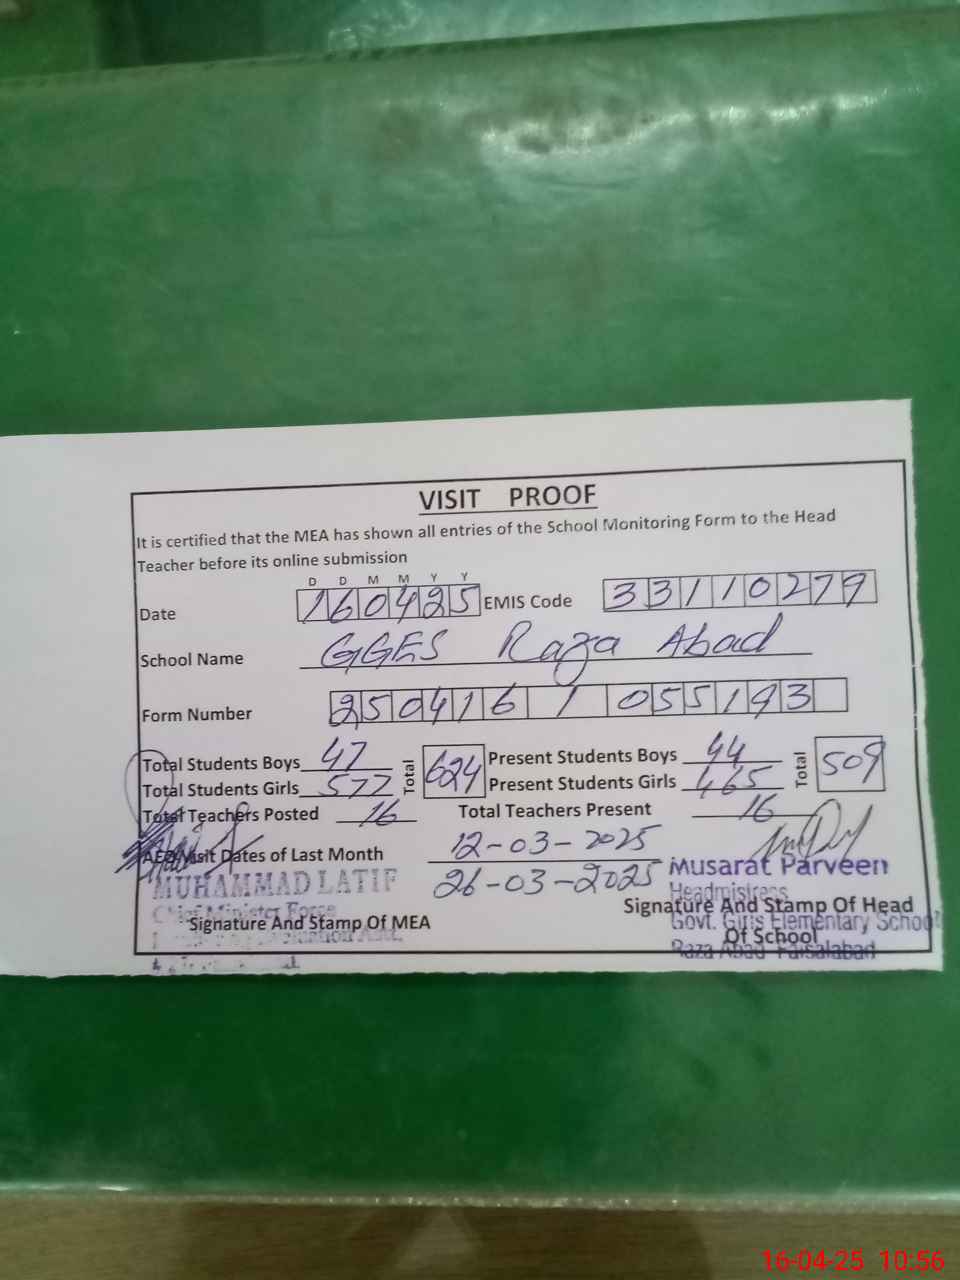 VISIT PROOF
It is certified that the MEA has shown all entries of the School Monitoring Form to the Head
Teacher before its online submission
D D M M Y Y
Date 160425 EMIS Code 33110279
School Name GGES Raza Abad
Form Number 250416 1 055193
Total Students Boys 47 Total 624 Present Students Boys 44 Total 509
Total Students Girls 577 Present Students Girls 465
Total Teachers Posted 16 Total Teachers Present 16
AEO Visit Dates of Last Month 12-03-2025
26-03-2025
MUHAMMAD LATIF
Chief Minister Force
Signature And Stamp Of MEA
Musarat Parveen
Headmistress
Signature And Stamp Of Head
Govt. Girls Elementary School
Of School
Raza Abad Faisalabad
16-04-25 10:56